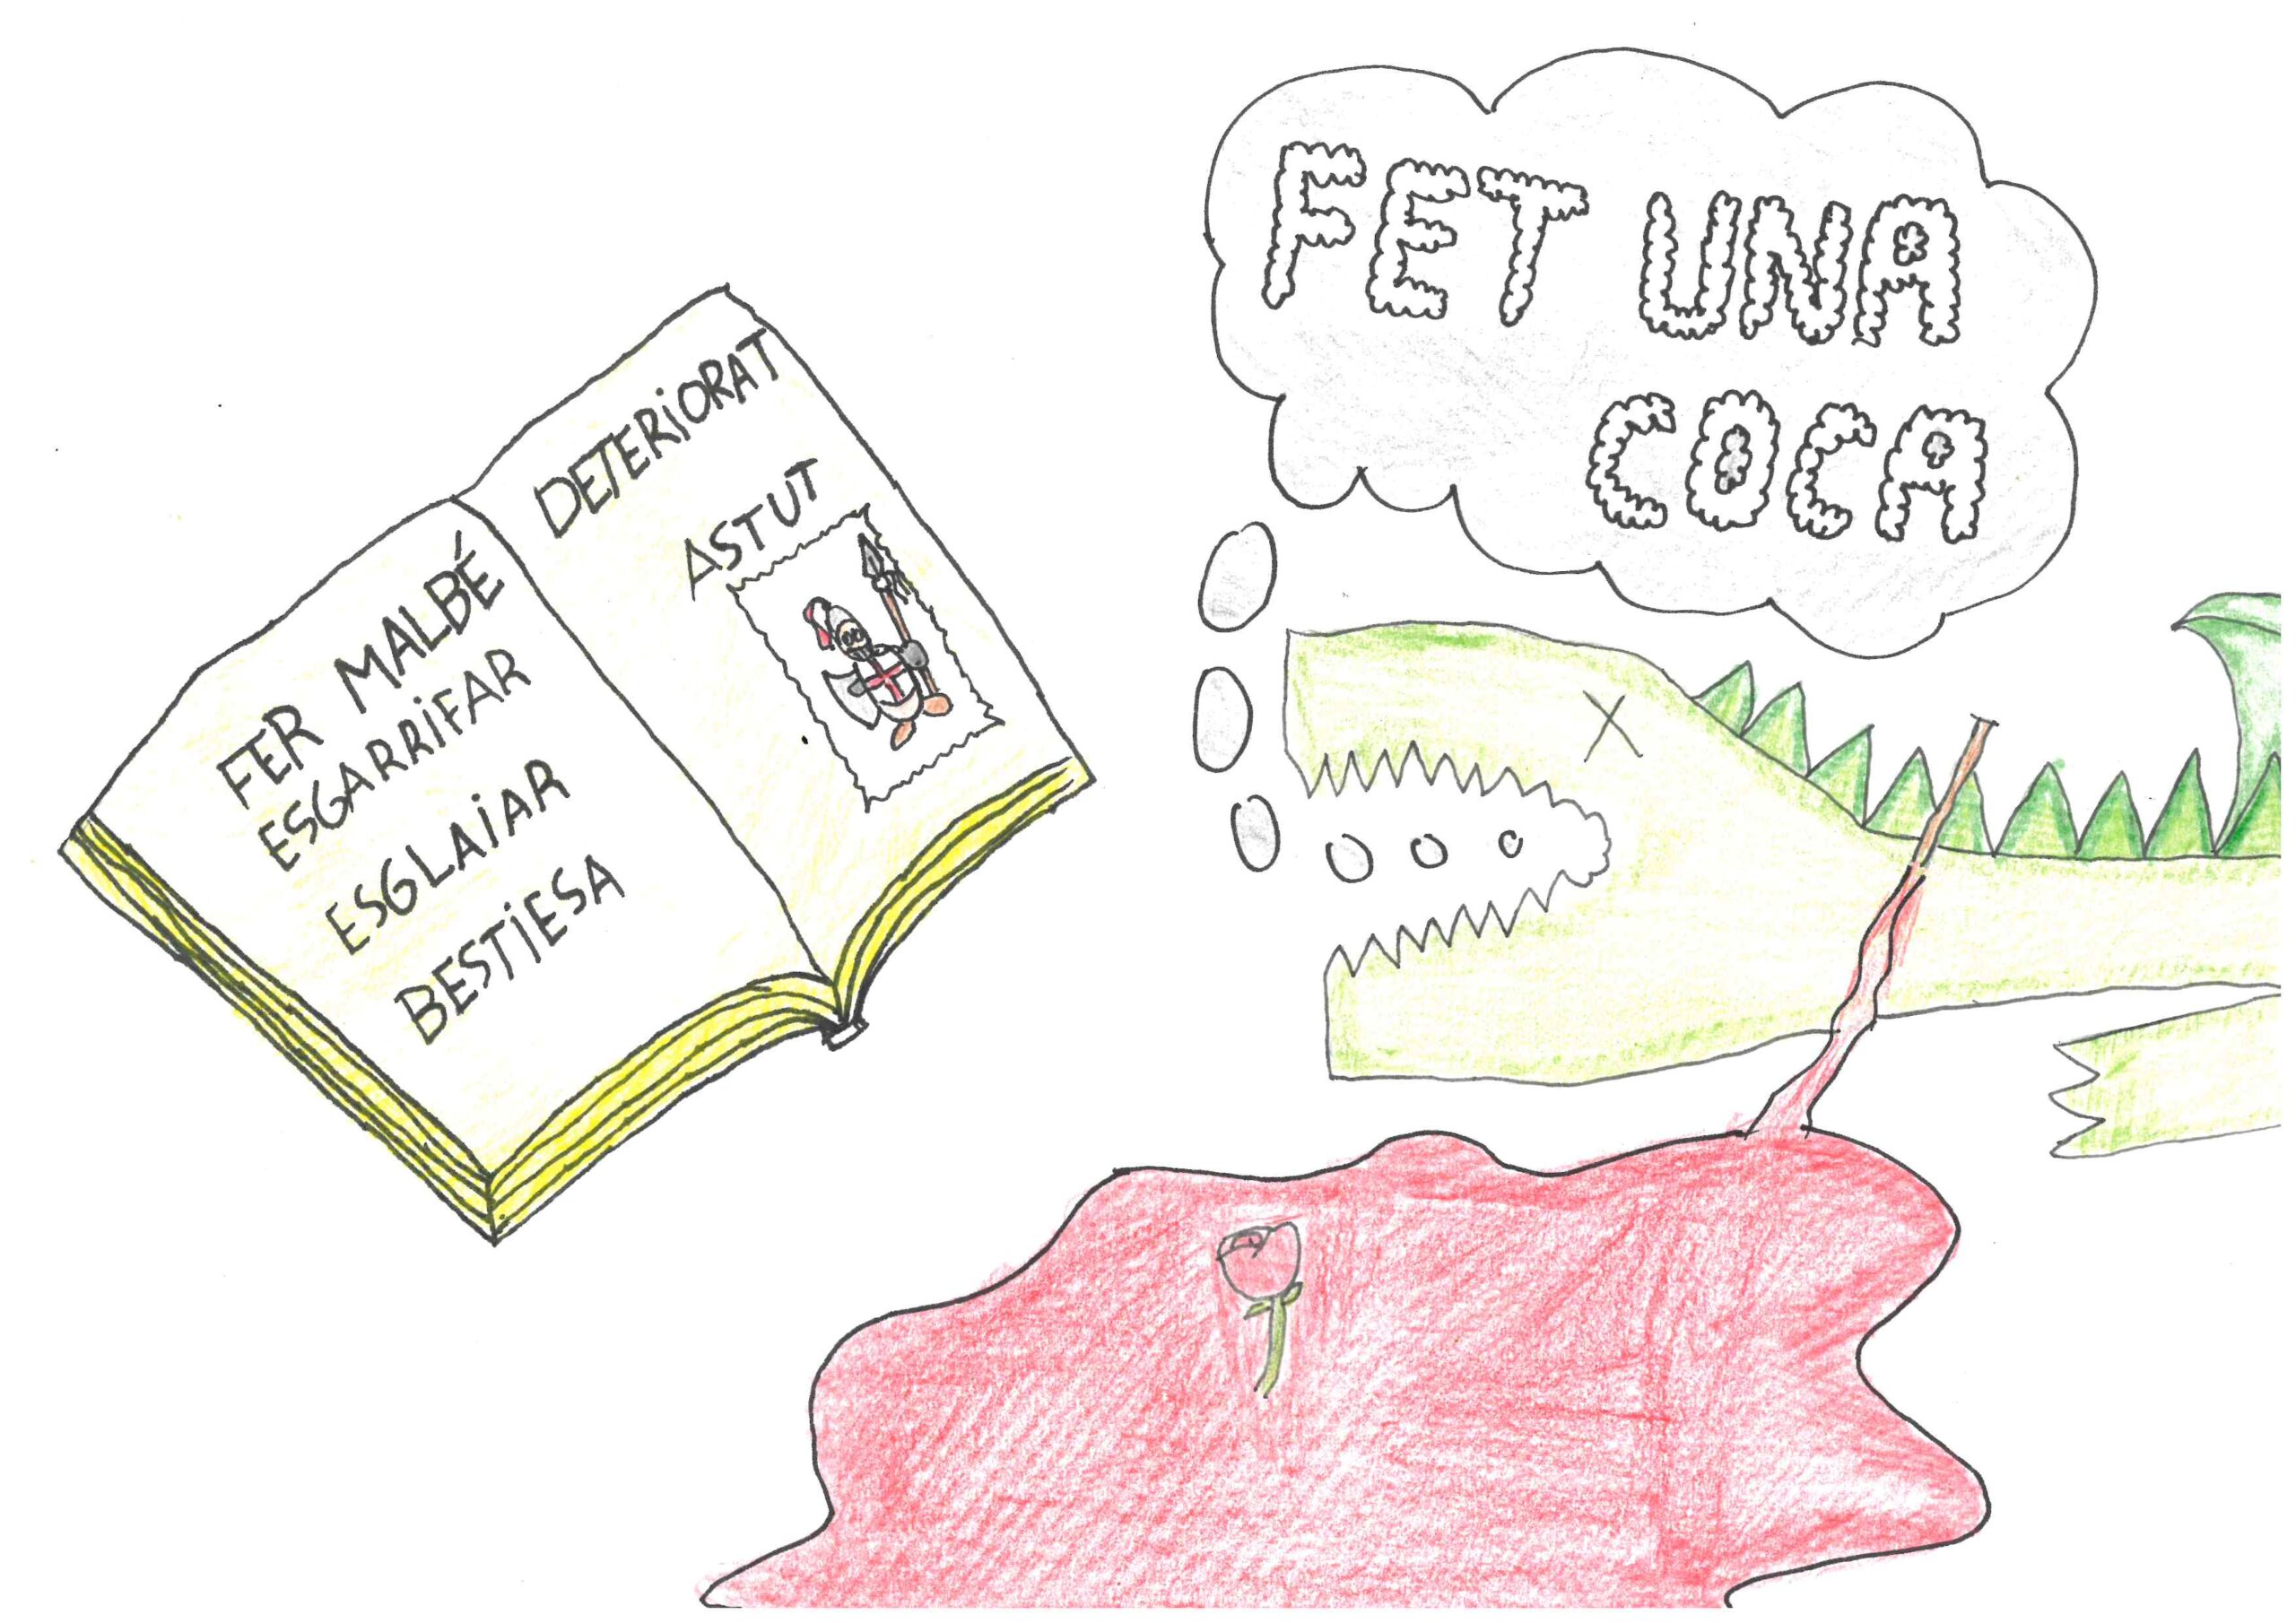 FER MALBÉ
ESGARRIFAR
ESGLAIAR
BESTIESA
DETERIORAT
ASTUT
FET UNA
COCA